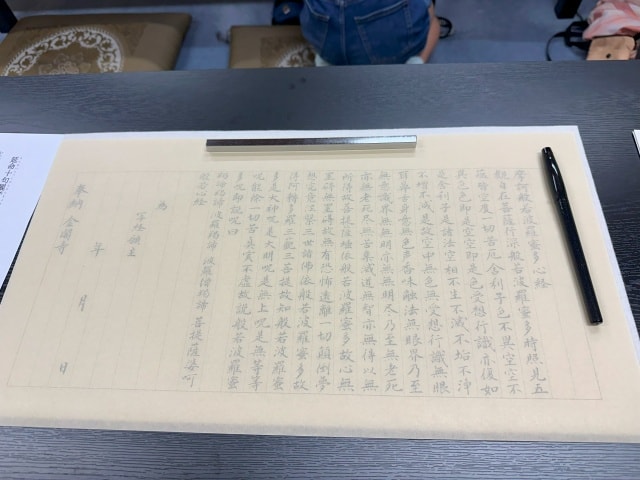 摩訶般若波羅蜜多心経
観自在菩薩行深般若波羅蜜多時照見五
蘊皆空度一切苦厄舎利子色不異空空不
異色色即是空空即是色受想行識亦復如
是舎利子是諸法空相不生不滅不垢不浄
不増不減是故空中無色無受想行識無眼
耳鼻舌身意無色声香味触法無眼界乃至
無意識界無無明亦無無明尽乃至無老死
亦無老死尽無苦集滅道無智亦無得以無
所得故菩提薩埵依般若波羅蜜多故心無
罣礙無罣礙故無有恐怖遠離一切顛倒夢
想究竟涅槃三世諸仏依般若波羅蜜多故
得阿耨多羅三藐三菩提故知般若波羅蜜
多是大神呪是大明呪是無上呪是無等等
呪能除一切苦真実不虚故説般若波羅蜜
多呪即説呪曰
羯諦羯諦 波羅羯諦 波羅僧羯諦 菩提薩婆訶
般若心経
為
願主
年 月 日
奉納 金閣寺
延命十句観